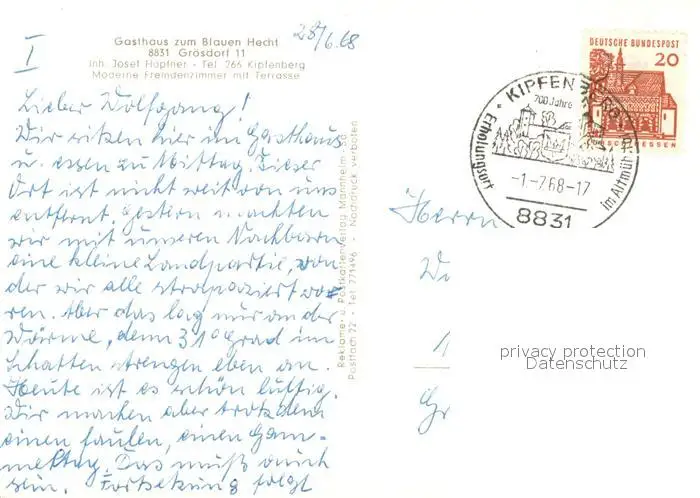 I
28/6.68
Gasthaus zum Blauen Hecht
8831 Grösdorf 11
Inh. Josef Hopfner - Tel. 266 Kipfenberg
Moderne Fremdenzimmer mit Terrasse
Lieber Wolfgang!
Wir sitzen hier im Gasthaus
u. essen zu Mittag. Dieser
Ort ist nicht weit von uns
entfernt. Gestern machten
wir mit unseren Nachbarn
eine kleine Landpartie, von
der wir alle strapaziert wa-
ren. Aber das lag nur an der
Wärme, denn 31° Grad im
Schatten strengen eben an.
Heute ist es schön luftig.
Wir machen aber trotzdem
einen faulen, einen Gam-
meltag. Das muß auch
sein. Fortsetzung folgt
Reklame- u. Postkartenverlag Mannheim-56
Postfach 22 - Tel. 771496 - Nachdruck verboten
DEUTSCHE BUNDESPOST
20
KIPFEN
700 Jahre
Erholungsort
im Altmüh
-1.-7.68-17
8831
Herrn
privacy protection
Datenschutz